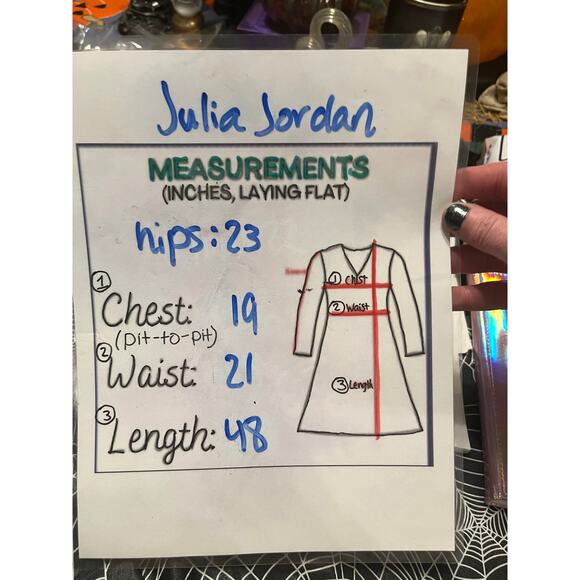 Julia Jordan
MEASUREMENTS
(INCHES, LAYING FLAT)
hips: 23
① Chest: 19
(pit-to-pit)
② Waist: 21
③ Length: 48
① Chest
② Waist
③ Length